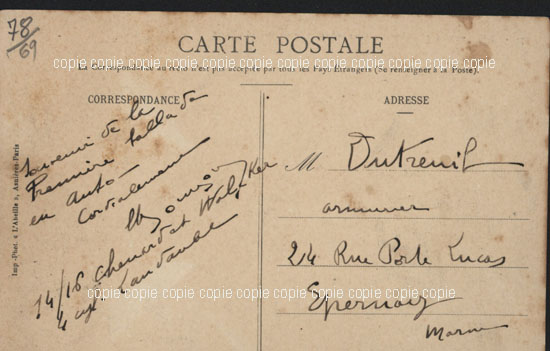 78
69
CARTE POSTALE
La Correspondance au recto n'est pas acceptée par tous les Pays Etrangers (Se renseigner à la Poste).
copie copie copie copie copie copie copie copie
CORRESPONDANCE
ADRESSE
Imp.-Phot. « L'Abeille », Asnières-Paris
Souvenir de la
Première
en auto
Cordialement
14/18 Chenard et Walcker
4 cyl.
M Dutreuil
armurier
24 Rue Porte Lucas
Epernay
Marne
copie copie copie copie copie copie copie copie
copie copie copie copie copie copie copie copie